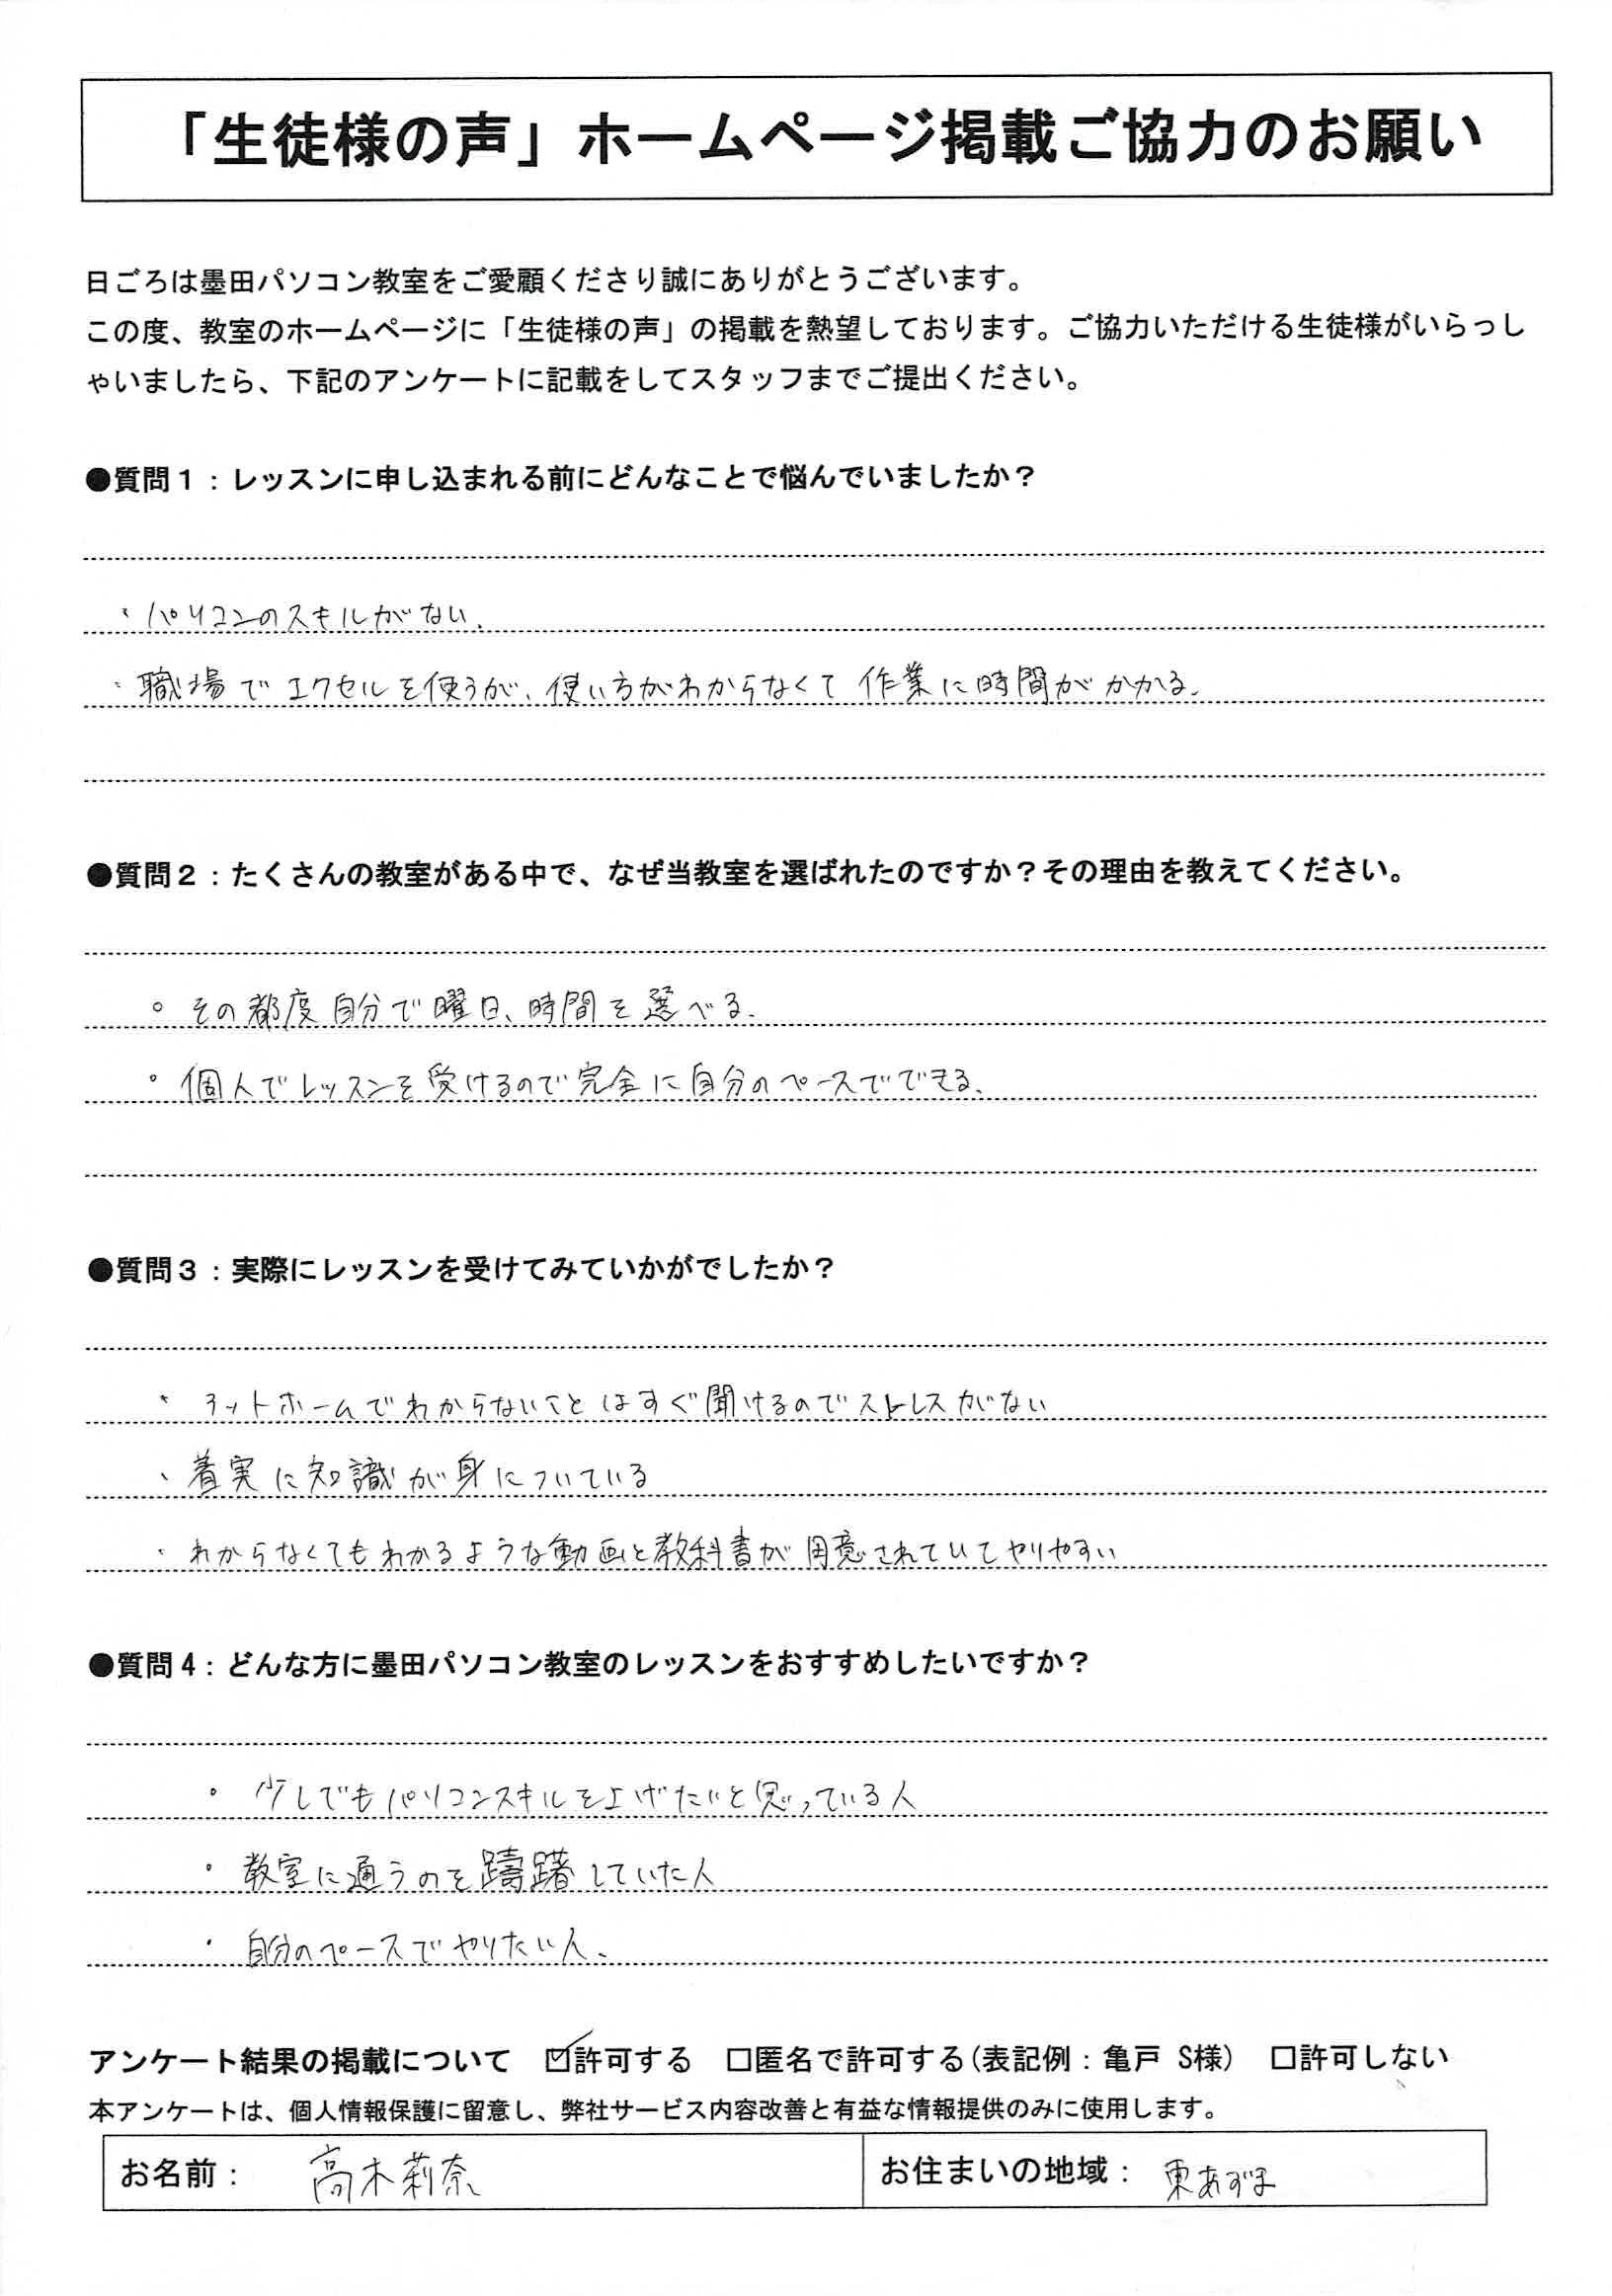 「生徒様の声」ホームページ掲載ご協力のお願い
日ごろは墨田パソコン教室をご愛顧くださり誠にありがとうございます。
この度、教室のホームページに「生徒様の声」の掲載を熱望しております。ご協力いただける生徒様がいらっし
ゃいましたら、下記のアンケートに記載をしてスタッフまでご提出ください。
●質問1：レッスンに申し込まれる前にどんなことで悩んでいましたか？
・パソコンのスキルがない。
・職場でエクセルを使うが、使い方がわからなくて作業に時間がかかる。
●質問2：たくさんの教室がある中で、なぜ当教室を選ばれたのですか？その理由を教えてください。
・その都度自分で曜日、時間を選べる。
・個人でレッスンを受けるので完全に自分のペースでできる。
●質問3：実際にレッスンを受けてみていかがでしたか？
・アットホームでわからないことはすぐ聞けるのでストレスがない
・着実に知識が身についている
・わからなくてもわかるような動画と教科書が用意されていてやりやすい
●質問4：どんな方に墨田パソコン教室のレッスンをおすすめしたいですか？
・少しでもパソコンスキルを上げたいと思っている人
・教室に通うのを躊躇していた人
・自分のペースでやりたい人。
アンケート結果の掲載について ☑許可する □匿名で許可する(表記例：亀戸 S様) □許可しない
本アンケートは、個人情報保護に留意し、弊社サービス内容改善と有益な情報提供のみに使用します。
お名前： 高木莉奈 お住まいの地域： 東あずま